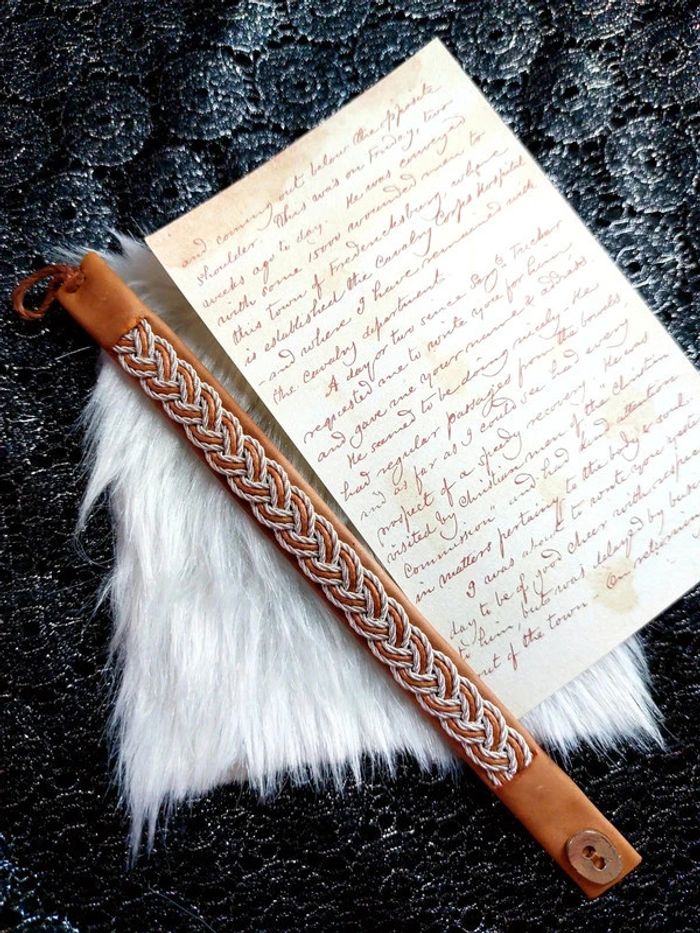 and coming out below the opposite
shoulder. This was on Friday, two
weeks ago to day. He was conveyed
with some 15000 wounded men to
this town of Fredericksburg, where
is established the Cavalry Corps Hospital
- and where I have remained with
the Cavalry department.
A day or two since Sergt. Tucker
requested me to write you for him
and gave me your name & address
He seemed to be doing nicely. He
had regular passages from the bowels,
and as far as I could see had every
prospect of a speedy recovery. He was
visited by Christian men of the "Christian
Commission" and had kind attentions
in matters pertaining to the body & soul.
I was about to write you yester
day to be of good cheer with respect
to him, but was delayed by
out of the town - On returning